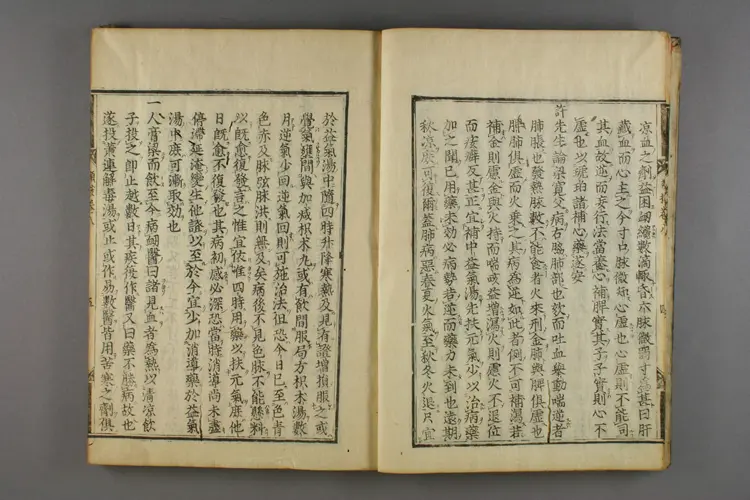 凉血之劑益困脉微關寸為甚曰肝
藏血而心主之今寸口脉微知心虛也心虛則不能司
其血故逆而妄行法當養心補脾實其子子實則心不
虛也以琥珀諸補心藥遂安
許先生論梁寬父病右脇肺部也欬而吐血舉動喘逆者
肺脹也發熱脉數不能食者火來刑金肺與脾俱虛也
脾肺俱虛而火乘之其病為逆如此者例不可補瀉若
補金則慮金與火持而喘咳益增瀉火則慮火不退位
而痃癖反甚正宜補中益氣湯先扶元氣少以治病藥
加之聞已用藥未効必病勢苦逆而藥力未到也遠期
秋凉庶可復爾蓋肺病惡春夏火氣至秋冬火退只宜
於益氣湯中隨四時升降寒熱及見有證增損服之或
覺氣壅間與加減枳木丸或有飲間服局方枳木湯數
月逆氣少回逆氣回則可施治法但恐今日已至色青
色赤及脉弦脉洪則無及矣病後不見色脉不能懸料
以既愈復發言之惟宜依惟四時用藥以扶元氣庶他
日既愈不復發也其病初感必深恐當時消導尚未盡
停滯延淹變生他證以至於今宜少加消導藥於益氣
湯中庶可漸取効也
一人膏粱而飲至今病衄醫曰諸見血者為熱以清凉飲
子投之即止越數日其疾復作醫又曰藥不勝病故也
遂投黃連解毒湯或止或作易數醫皆用苦寒之劑俱